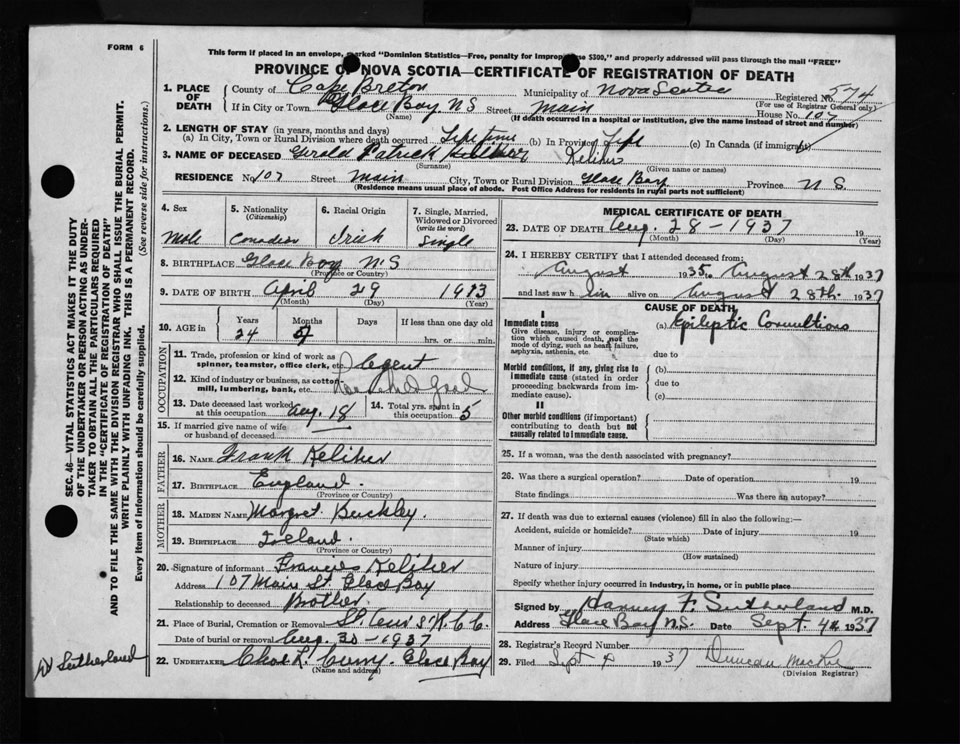 FORM 6
This form if placed in an envelope, marked "Dominion Statistics—Free, penalty for improper $300," and properly addressed will pass through the mail "FREE"
PROVINCE OF NOVA SCOTIA—CERTIFICATE OF REGISTRATION OF DEATH
1. PLACE OF DEATH
County of Cape Breton Municipality of Nova Scotia Registered No. 574
(For use of Registrar General only)
If in City or Town Glace Bay N S Street Main House No. 107
(Name) (If death occurred in a hospital or institution, give the name instead of street and number)
2. LENGTH OF STAY (in years, months and days)
(a) In City, Town or Rural Division where death occurred Life time (b) In Province Life (c) In Canada (if immigrant)
3. NAME OF DECEASED Gerald Patrick Keliher
(Surname) (Given name or names)
RESIDENCE No. 107 Street Main City, Town or Rural Division Glace Bay Province N S
(Residence means usual place of abode. Post Office Address for residents in rural parts not sufficient)
4. Sex 5. Nationality (Citizenship) 6. Racial Origin 7. Single, Married, Widowed or Divorced (write the word)
Male Canadian Irish Single
8. BIRTHPLACE Glace Bay N.S
(Province or Country)
9. DATE OF BIRTH April 29 1913
(Month) (Day) (Year)
10. AGE in Years Months Days If less than one day old
24 hrs. or min.
OCCUPATION
11. Trade, profession or kind of work as spinner, teamster, office clerk, etc. Agent
12. Kind of industry or business, as cotton-mill, lumbering, bank, etc.
13. Date deceased last worked at this occupation Aug. 18 14. Total yrs. spent in this occupation 5
15. If married give name of wife or husband of deceased
FATHER
16. NAME Frank Keliher
17. BIRTHPLACE England.
(Province or Country)
MOTHER
18. MAIDEN NAME Margret Buckley.
19. BIRTHPLACE Ireland.
(Province or Country)
20. Signature of informant Francis Keliher
Address 107 Main St. Glace Bay
Relationship to deceased Brother
21. Place of Burial, Cremation or Removal
Date of burial or removal Aug. 30-1937
22. UNDERTAKER Chas L. Curry. Glace Bay
(Name and address)
MEDICAL CERTIFICATE OF DEATH
23. DATE OF DEATH Aug. 28-1937 19
(Month) (Day) (Year)
24. I HEREBY CERTIFY that I attended deceased from:
August 1935 to August 28th 1937
and last saw h im alive on August 28th. 1937
CAUSE OF DEATH
I
Immediate cause
Give disease, injury or complication which caused death, not the mode of dying, such as heart failure, asphyxia, asthenia, etc.
(a) Epileptic Convultions
due to
Morbid conditions, if any, giving rise to immediate cause (stated in order proceeding backwards from immediate cause).
(b)
due to
(c)
II
Other morbid conditions (if important) contributing to death but not causally related to immediate cause.
25. If a woman, was the death associated with pregnancy?
26. Was there a surgical operation? Date of operation 19
State findings Was there an autopsy?
27. If death was due to external causes (violence) fill in also the following:—
Accident, suicide or homicide? Date of injury 19
(State which)
Manner of injury
(How sustained)
Nature of injury
Specify whether injury occurred in industry, in home, or in public place
Signed by Harvey F. Sutherland M.D.
Address Glace Bay N.S. Date Sept. 4th 1937
28. Registrar's Record Number
29. Filed Sept 4 1937 Duncan
(Division Registrar)
SEC. 46—VITAL STATISTICS ACT MAKES IT THE DUTY
OF THE UNDERTAKER OR PERSON ACTING AS UNDER-
TAKER TO OBTAIN ALL THE PARTICULARS REQUIRED
IN THE "CERTIFICATE OF REGISTRATION OF DEATH"
AND TO FILE THE SAME WITH THE DIVISION REGISTRAR WHO SHALL ISSUE THE BURIAL PERMIT.
WRITE PLAINLY WITH UNFADING INK. THIS IS A PERMANENT RECORD.
Every item of information should be carefully supplied. (See reverse side for instructions.)
Sutherland